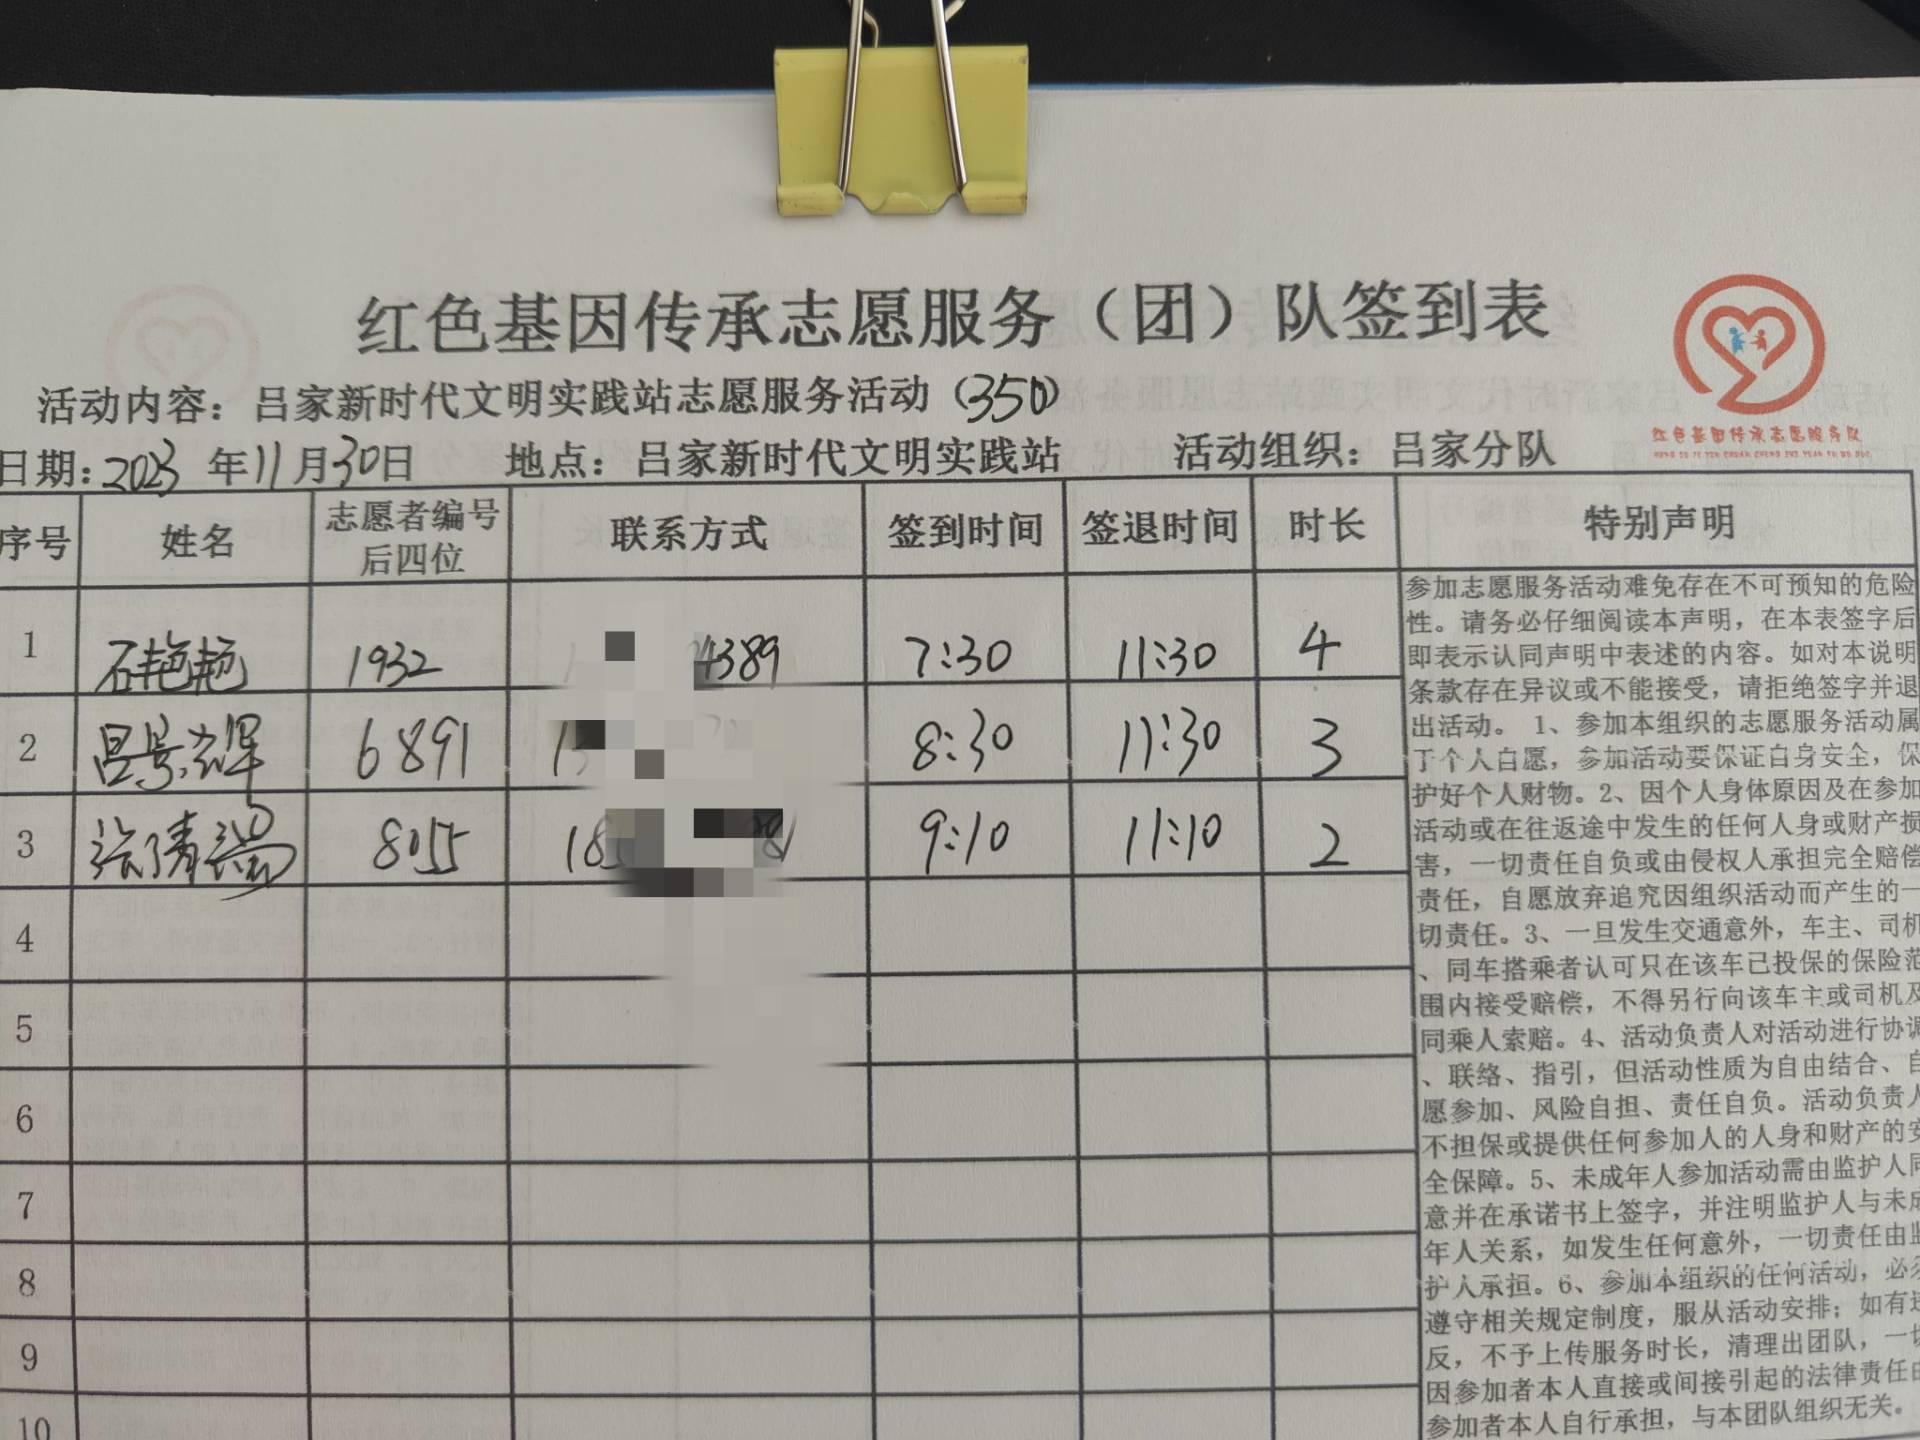 红色基因传承志愿服务（团）队签到表
活动内容：吕家新时代文明实践站志愿服务活动（350）
红色基因传承志愿服务队
HONG SE JI YIN CHUAN CHENG ZHI YUAN FU WU DUI
日期：2023 年11月30日 地点：吕家新时代文明实践站 活动组织：吕家分队
序号 姓名 志愿者编号后四位 联系方式 签到时间 签退时间 时长 特别声明
1 石艳艳 1932 4389 7:30 11:30 4
2 吕景辉 6891 15 8:30 11:30 3
3 8055 185 81 9:10 11:10 2
4
5
6
7
8
9
10
参加志愿服务活动难免存在不可预知的危险
性。请务必仔细阅读本声明，在本表签字后
即表示认同声明中表述的内容。如对本说明
条款存在异议或不能接受，请拒绝签字并退
出活动。 1、参加本组织的志愿服务活动属
于个人自愿，参加活动要保证自身安全，保
护好个人财物。2、因个人身体原因及在参加
活动或在往返途中发生的任何人身或财产损
害，一切责任自负或由侵权人承担完全赔偿
责任，自愿放弃追究因组织活动而产生的一
切责任。3、一旦发生交通意外，车主、司机
、同车搭乘者认可只在该车已投保的保险范
围内接受赔偿，不得另行向该车主或司机及
同乘人索赔。4、活动负责人对活动进行协调
、联络、指引，但活动性质为自由结合、自
愿参加、风险自担、责任自负。活动负责人
不担保或提供任何参加人的人身和财产的安
全保障。5、未成年人参加活动需由监护人同
意并在承诺书上签字，并注明监护人与未成
年人关系，如发生任何意外，一切责任由监
护人承担。6、参加本组织的任何活动，必须
遵守相关规定制度，服从活动安排；如有违
反，不予上传服务时长，清理出团队，一切
因参加者本人直接或间接引起的法律责任由
参加者本人自行承担，与本团队组织无关。